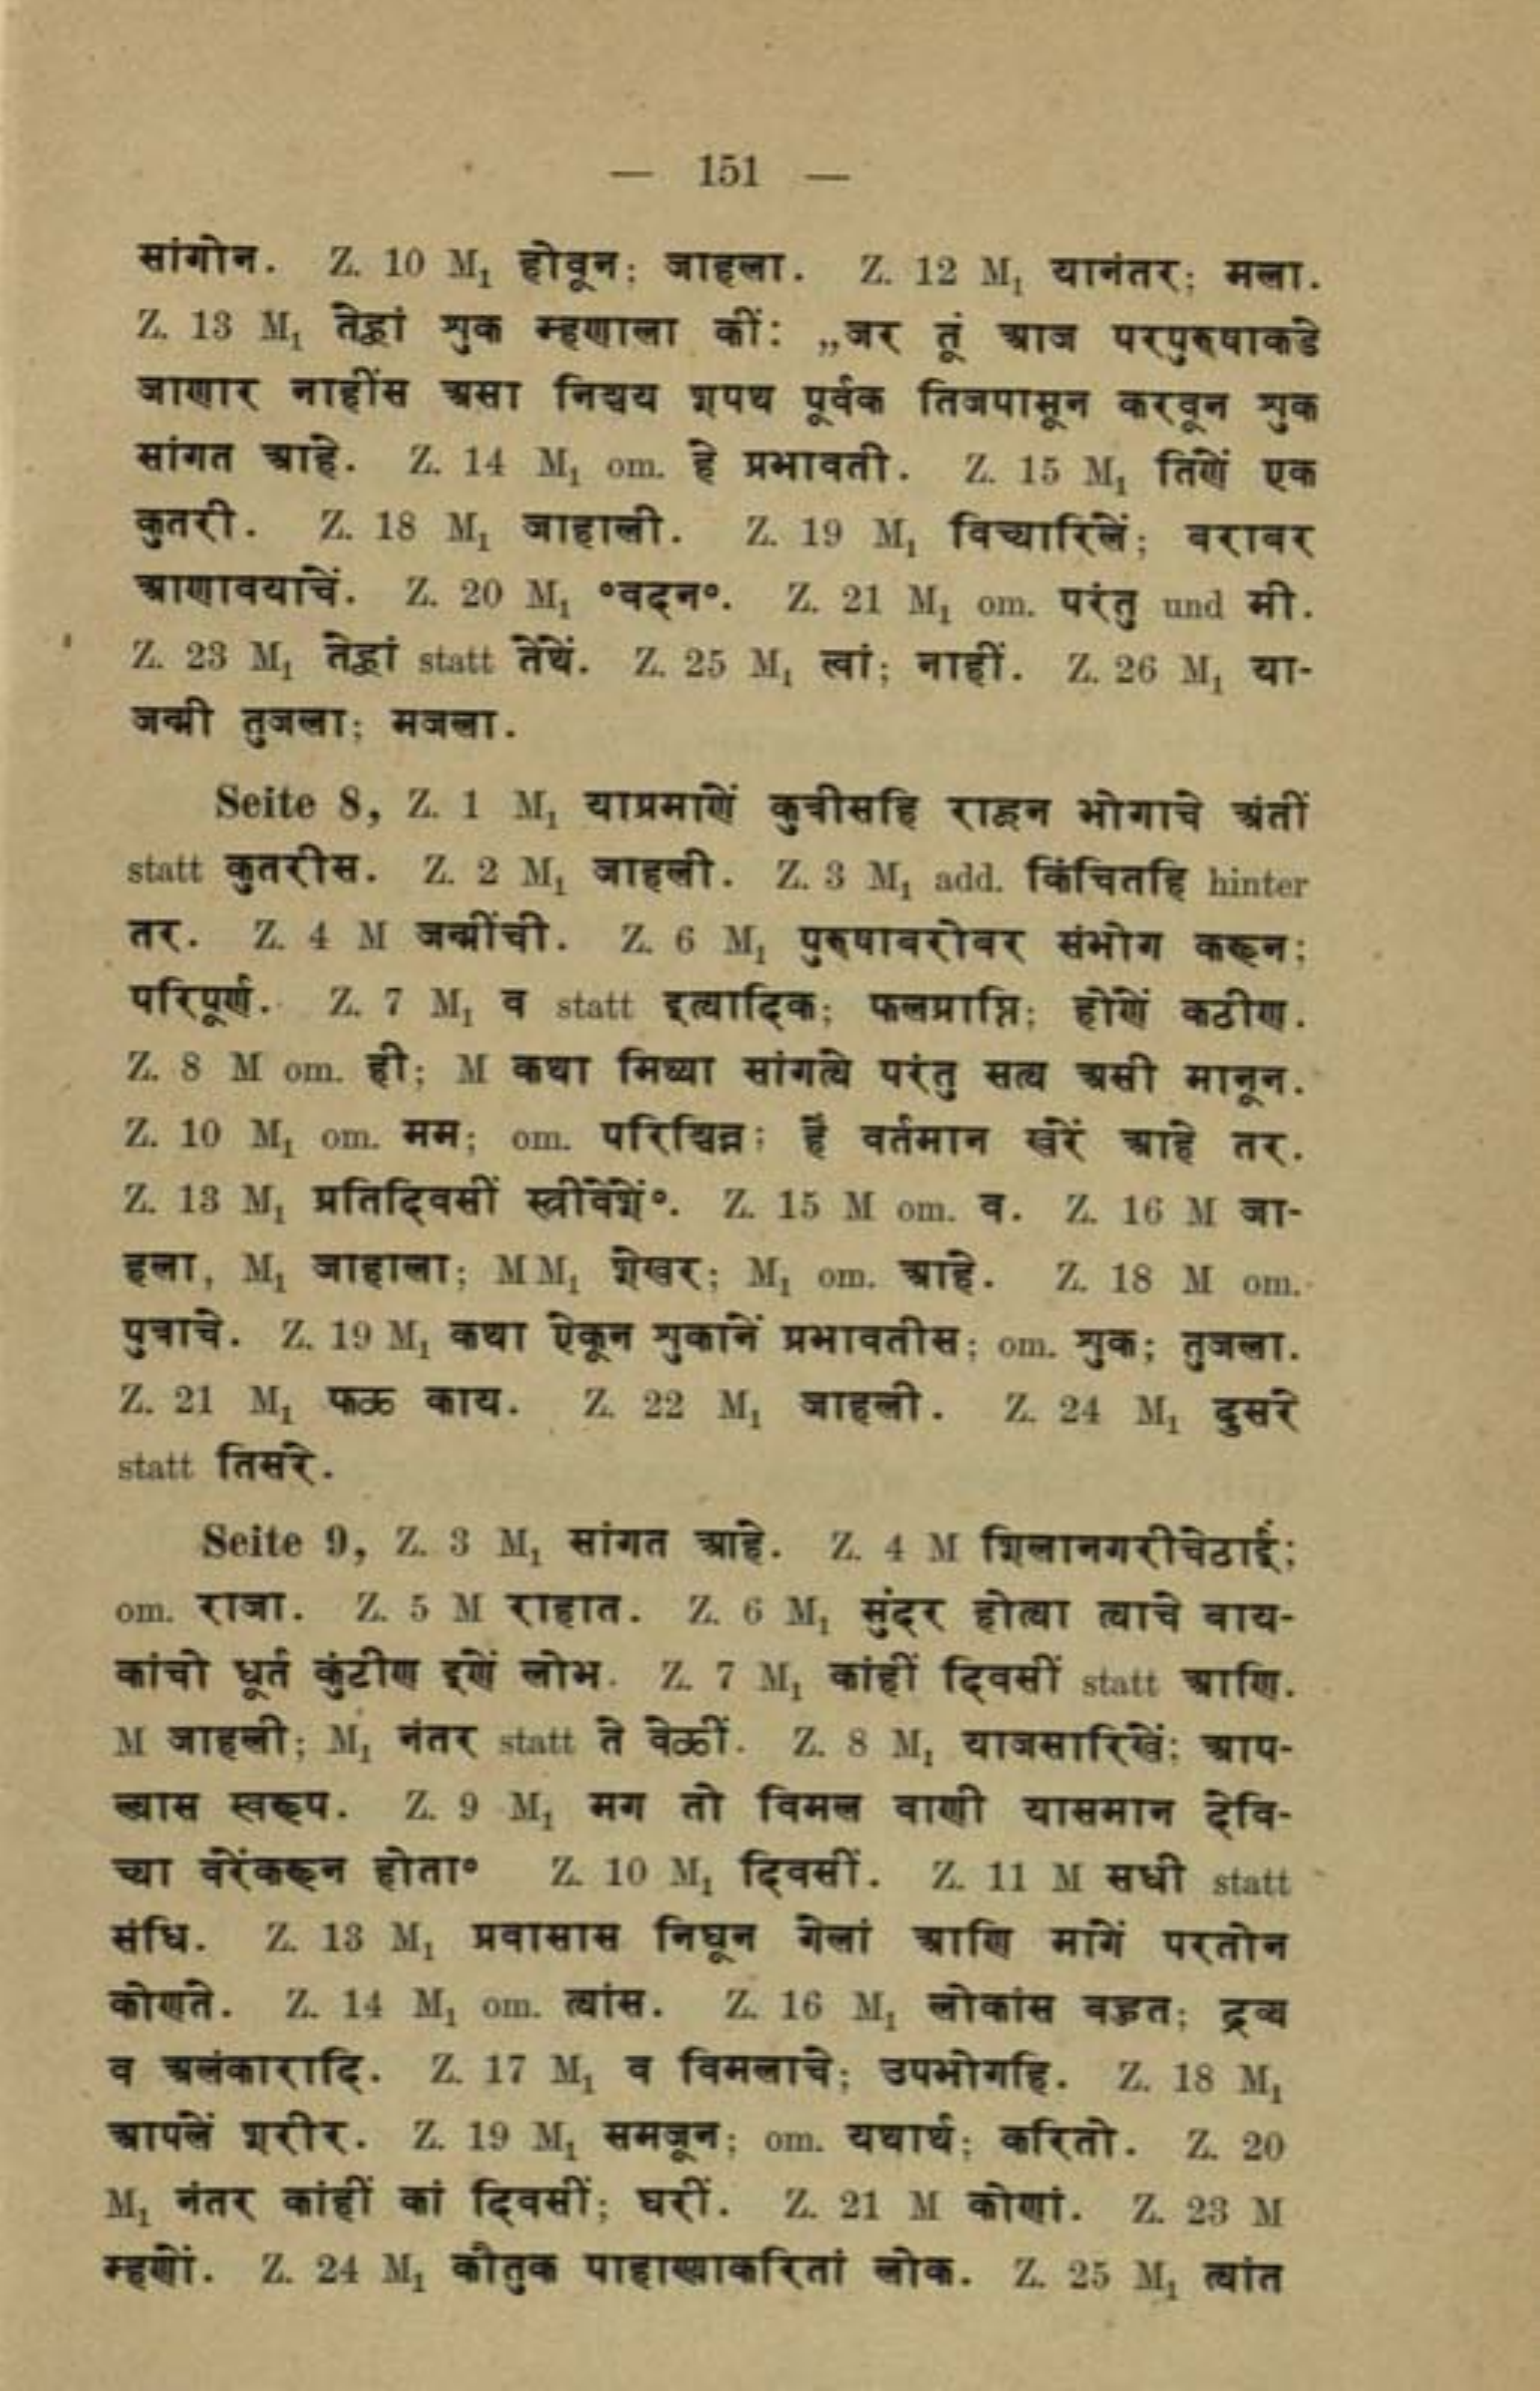 — 151 —
सांगोन. Z. 10 M₁ होवून; जाहला. Z. 12 M₁ यानंतर; मला.
Z. 13 M₁ तेव्हां शुक म्हणाला कीं: „जर तूं आज परपुरुषाकडे
जाणार नाहींस असा निश्चय शपथ पूर्वक तिजपासून करवून शुक
सांगत आहे. Z. 14 M₁ om. हे प्रभावती. Z. 15 M₁ तिणें एक
कुतरी. Z. 18 M₁ जाहाली. Z. 19 M₁ विच्यारिलें; बराबर
आणावयाचें. Z. 20 M₁ °वदन°. Z. 21 M₁ om. परंतु und मी.
Z. 23 M₁ तेव्हां statt तेंथें. Z. 25 M₁ त्वां; नाहीं. Z. 26 M₁ या-
जन्मी तुजला; मजला.
Seite 8, Z. 1 M₁ याप्रमाणें कुत्रीसहि राहून भोगाचे अंतीं
statt कुतरीस. Z. 2 M₁ जाहली. Z. 3 M₁ add. किंचितहि hinter
तर. Z. 4 M जन्मींची. Z. 6 M₁ पुरुषाबरोबर संभोग करून;
परिपूर्ण. Z. 7 M₁ व statt इत्यादिक; फलप्राप्ति; होणें कठीण.
Z. 8 M om. ही; M कथा मिथ्या सांगत्ये परंतु सत्य असी मानून.
Z. 10 M₁ om. मम; om. परिच्छिन्न; हें वर्तमान खरें आहे तर.
Z. 13 M₁ प्रतिदिवसीं स्त्रीवेंशें°. Z. 15 M om. व. Z. 16 M जा-
हला, M₁ जाहाला; MM₁ शेखर; M₁ om. आहे. Z. 18 M om.
पुत्राचे. Z. 19 M₁ कथा ऐकून शुकानें प्रभावतीस; om. शुक; तुजला.
Z. 21 M₁ फळ काय. Z. 22 M₁ जाहली. Z. 24 M₁ दुसरे
statt तिसरे.
Seite 9, Z. 3 M₁ सांगत आहे. Z. 4 M शिलानगरीचेठाईं;
om. राजा. Z. 5 M राहात. Z. 6 M₁ सुंदर होत्या त्याचे बाय-
कांचो धूर्त कुंटीण इणें लोभ. Z. 7 M₁ कांहीं दिवसीं statt आणि.
M जाहली; M₁ नंतर statt ते वेळीं. Z. 8 M₁ याजसारिखें; आप-
ल्यास स्वरूप. Z. 9 M₁ मग तो विमल वाणी यासमान देवि-
च्या वरेंकरून होता° Z. 10 M₁ दिवसीं. Z. 11 M सधी statt
संधि. Z. 13 M₁ प्रवासास निघून गेलां आणि मागें परतोन
कोणते. Z. 14 M₁ om. त्यांस. Z. 16 M₁ लोकांस बहुत; द्रव्य
व अलंकारादि. Z. 17 M₁ व विमलाचे; उपभोगहि. Z. 18 M₁
आपलें शरीर. Z. 19 M₁ समजून; om. यथार्थ; करितो. Z. 20
M₁ नंतर कांहीं कां दिवसीं; घरीं. Z. 21 M कोणां. Z. 23 M
म्हणें. Z. 24 M₁ कौतुक पाहाण्याकरितां लोक. Z. 25 M₁ त्यांत